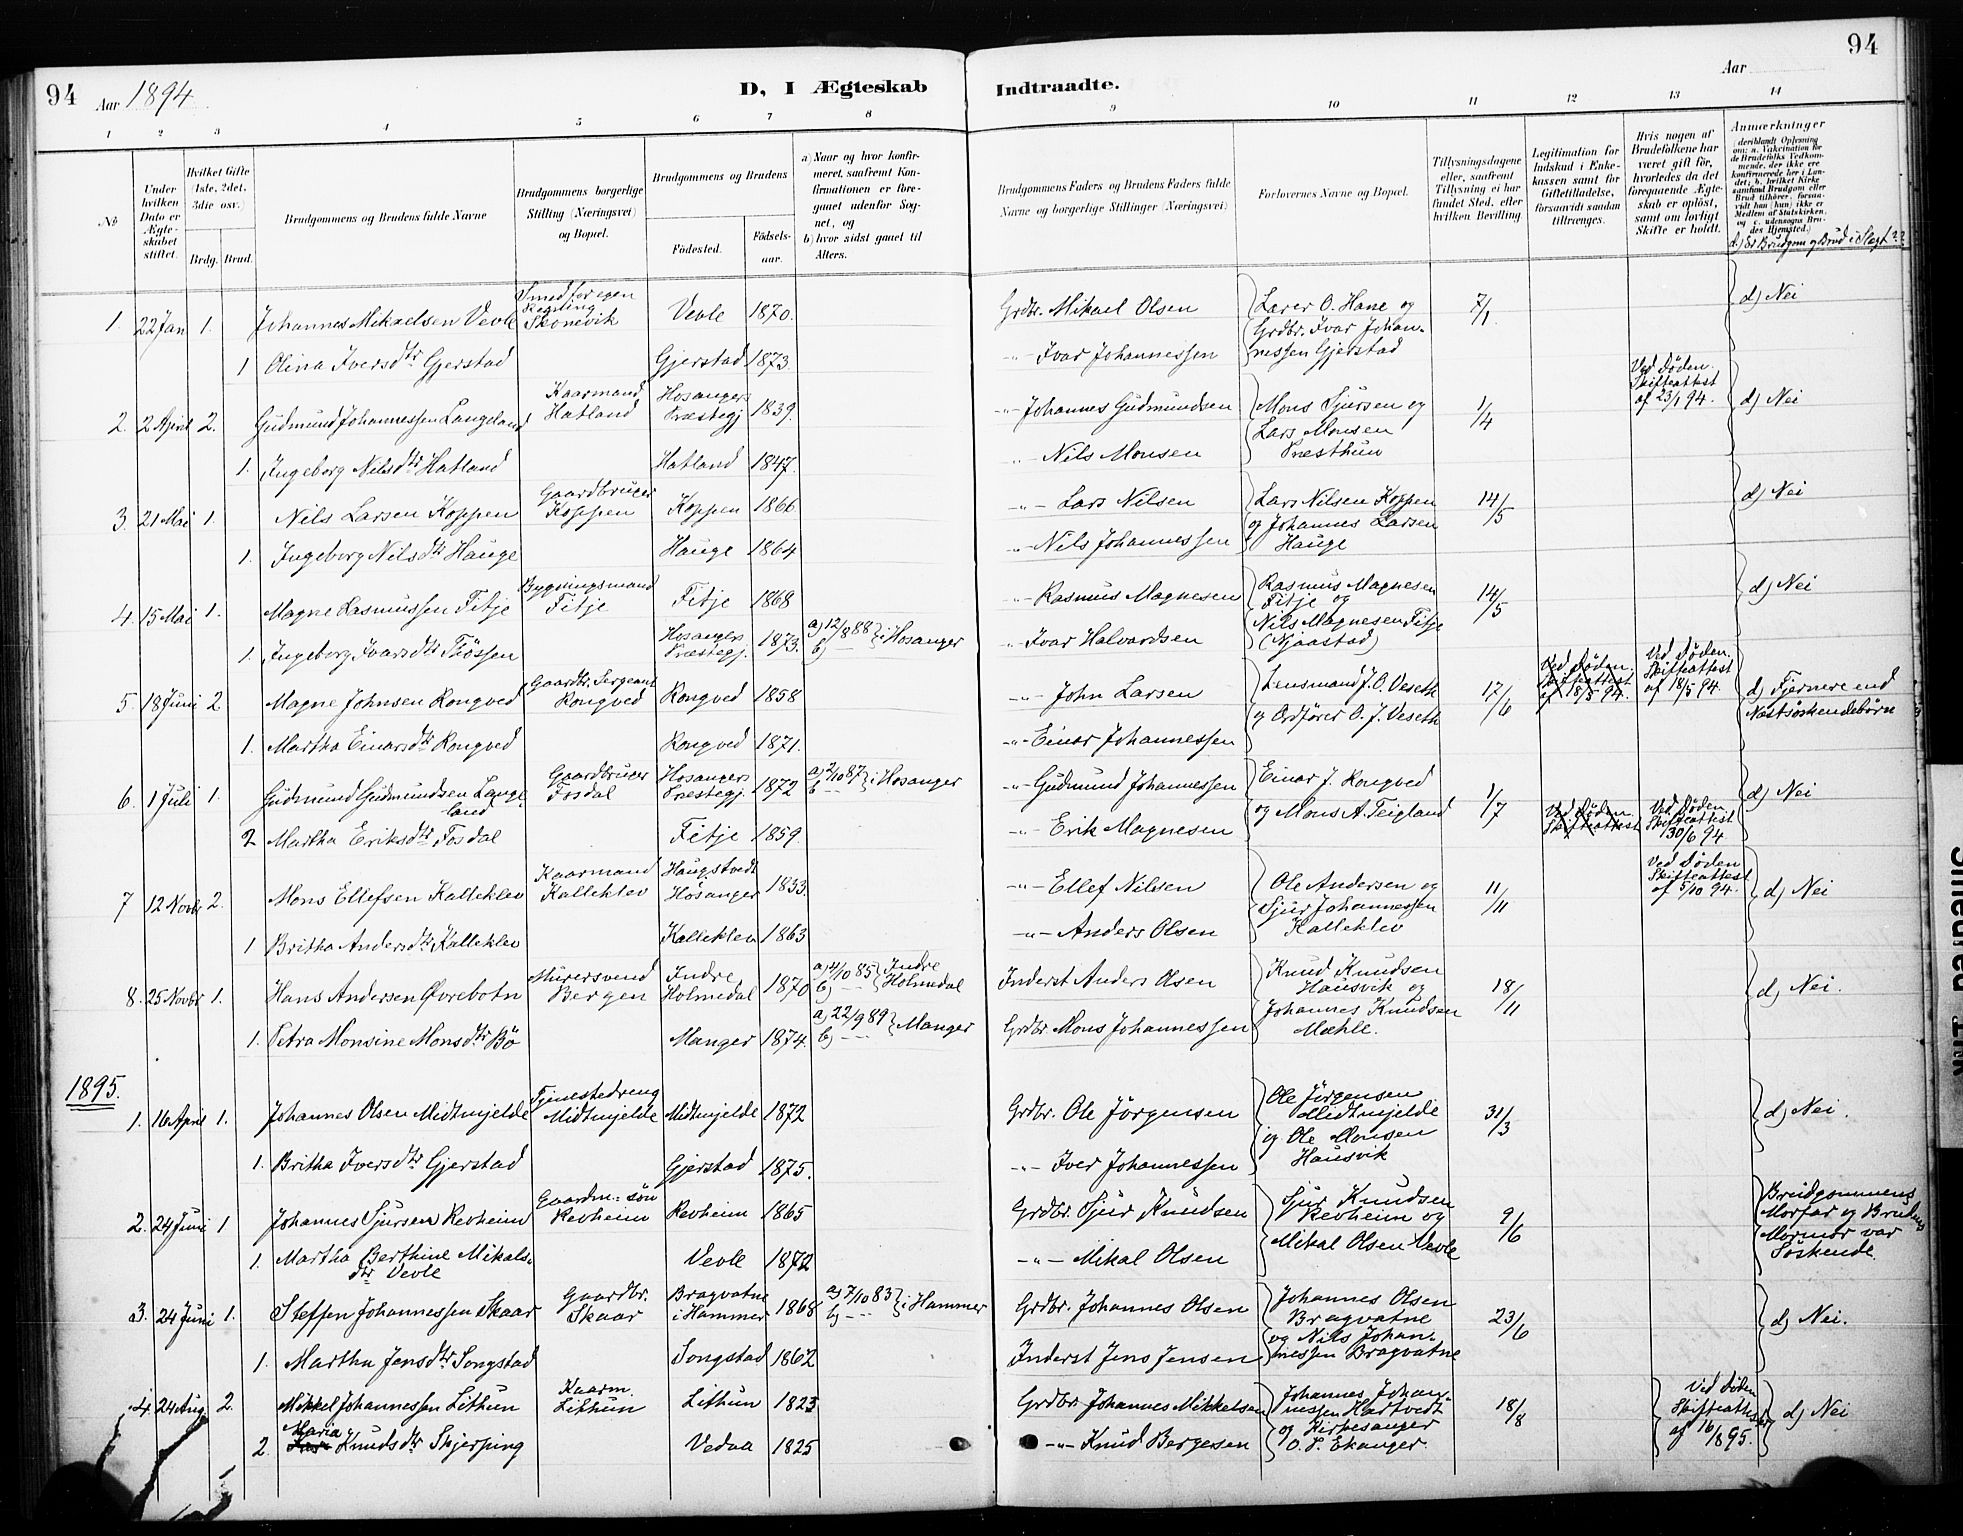 94 Aar 1894
D, I Ægteskab Indtraadte.
Aar
94
1 2 3 4 5 6 7 8 9 10 11 12 13 14
№
Under hvilken Dato er Ægteskabet stiftet.
Hvilket Gifte (1ste, 2det, 3die osv.)
Brdg. Brud.
Brudgommens og Brudens fulde Navne
Brudgommens borgerlige Stilling (Næringsvei) og Bopæl.
Brudgommens og Brudens
Fødested.
Fødselsaar.
a) Naar og hvor konfirmeret, saafremt Konfirmationen er foregaaet udenfor Sognet, og
b) hvor sidst gaaet til Alters.
Brudgommens Faders og Brudens Faders fulde Navne og borgerlige Stillinger (Næringsvei)
Forlovernes Navne og Bopæl.
Tillysningsdagene eller, saafremt Tillysning ei har fundet Sted, efter hvilken Bevilling.
Legitimation for Indskud i Enkekassen samt for Giftetilladelse, forsaavidt saadan tiltrænges.
Hvis nogen af Brudefolkene har været gift før, hvorledes da det foregaaende Ægteskab er opløst, samt om lovligt Skifte er holdt.
Anmærkninger
(deriblandt Oplysning om: a. Vakcination for de Brudefolks Vedkommende, der ikke ere konfirmerede her i Landet; b. hvilket Kirkesamfund Brudgom eller Brud tilhører, forsaavidt han (hun) ikke er Medlem af Statskirken, og c. udensogns Brudes Hjemsted.)
d.) Er Brudgom og Brud i Slægt??
1. 22 Jan 1. Johannes Mikaelsen Vevle Smed for egen Regning Skonevik Vevle 1870. Grdbr. Mikael Olsen Lærer O. Hane og Grdbr. Ivar Johannessen Gjerstad 7/1 d) Nei
1 Olina Iversdtr Gjerstad Gjerstad 1873. -"- Ivar Johannessen
2. 2 April 2. Gudmund Johannessen Langeland Kaarmand Hatland Hosangers Præstegj 1839. -"- Johannes Gudmundsen Mons Sjursen og Lars Monsen Præsthun 1/4 Ved Døden. Skifteattest af 23/1 94. d) Nei
1. Ingeborg Nilsdtr Hatland Hatland 1847. -"- Nils Monsen
3. 21 Mai 1. Nils Larsen Koppen Gaardbruger Koppen Koppen 1866 -"- Lars Nilsen Lars Nilsen Koppen og Johannes Larsen Hauge 14/5 d) Nei
1. Ingeborg Nilsdtr Hauge Hauge 1864 -"- Nils Johannessen
4. 15 Mai 1. Magne Rasmussen Fitje Bygningsmand Fitje Fitje 1868 -"- Rasmus Magnesen Rasmus Magnesen Fitje og Nils Magnesen Fitje (Njaastad) 14/5 d) Nei
1. Ingeborg Ivarsdtr Thössen Hosangers Præstegj. 1873. a) 12/8 88 b) -- i Hosanger -"- Ivar Halvardsen
5. 18 Juni 2 Magne Johnsen Rongved Gaardbr. Sergeant Rongved Rongved 1858 -"- John Larsen Lensmand J. O. Veseth og Ordfører O. J. Veseth 17/6 Ved Døden. Skifteattest af 18/5 94. Ved Døden. Skifteattest af 18/5 94. d) Fjernere end Næstsøskendebørn
1. Martha Einarsdtr Rongved Rongved 1871. -"- Einar Johannessen
6. 1 Juli 1. Gudmund Gudmundsen Langeland Gaardbruger Fosdal Hosangers Præstegj. 1872 a) 2/10 87 b -- i Hosanger -"- Gudmund Johannessen Einar J. Rongved og Mons A. Teigland 1/7 Ved Døden Skifteattest Ved Døden Skifteattest 30/6 94 d) Nei
2 Martha Eriksdtr Fosdal Fitje 1859. -"- Erik Magnesen
7 12 Novbr 2. Mons Ellefsen Kalleklev Kaarmand Kalleklev Haugstvedt Hosanger 1833. -"- Ellef Nilsen Ole Andersen og Sjur Johannessen Kalleklev 11/11 Ved Døden Skifteattest af 5/10 94. d) Nei
1 Britha Andersdtr Kalleklev Kalleklev 1863 -"- Anders Olsen
8. 25 Novbr 1. Hans Andersen Øvrebotn Murersvend Bergen Indre Holmedal 1870 a) 4/10 85 b) -- Indre Holmedal Inderst Anders Olsen Knud Knudsen Hausvik og Johannes Knudsen Mæhle. 18/11 d) Nei.
1. Petra Monsine Monsdtr Bö Manger 1874. a) 22/9 89 b) -- Manger Grdbr. Mons Johannessen
1895.
1. 16 April 1. Johannes Olsen Midtmjelde Tjenestedreng Midtmjelde Midtmjelde 1872 Grdbr. Ole Jörgensen Ole Jörgensen Midtmjelde og Ole Monsen Hausvik 31/3 d) Nei.
1. Britha Iversdtr Gjerstad Gjerstad 1875. -"- Iver Johannessen
2. 24 Juni 1 Johannes Sjursen Revheim Gaardm.:sön Revheim Revheim 1865 Grdbr. Sjur Knudsen Sjur Knudsen Revheim og Mikal Olsen Vevle 9/6 Brudgommens Morfar og Brudens Mormor var Söskende.
1. Martha Berthine Mikalsdtr Vevle Vevle 1872 -"- Mikal Olsen
3. 24 Juni 1. Steffen Johannessen Skaar Gaardbr. Skaar Bragvatne i Hammer 1868 a) 7/10 83 b) -- i Hammer Grdbr. Johannes Olsen Johannes Olsen Bragvatne og Nils Johannessen Bragvatne 23/6 d) Nei.
1. Martha Jensdtr Songstad Songstad 1862 Inderst Jens Jensen
4. 24 Aug. 2. Mikkel Johannessen Lithun Kaarm. Lithun Lithun 1823 Grdbr. Johannes Mikkelsen Johannes Johannessen Hartvedt og Kirkesanger O. S. Ekanger. 18/8 Ved Døden Skifteattest af 16/8 95. d) Nei
2. Maria Knudsdtr Skjerping Vedaa 1825 -"- Knud Bergesen